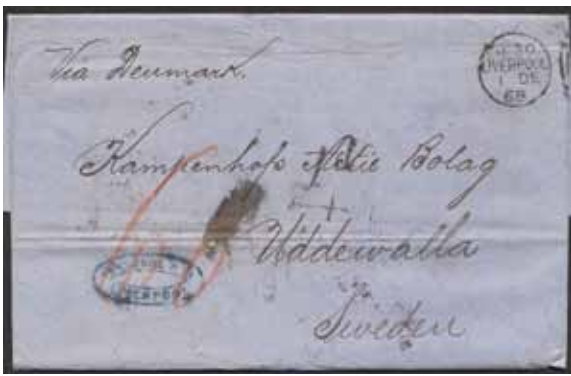 Via Denmark.
LIVERPOOL
1 DE
68
Kampenhofs Actie Bolag
Uddewalla
Sweden
LIVERPOOL